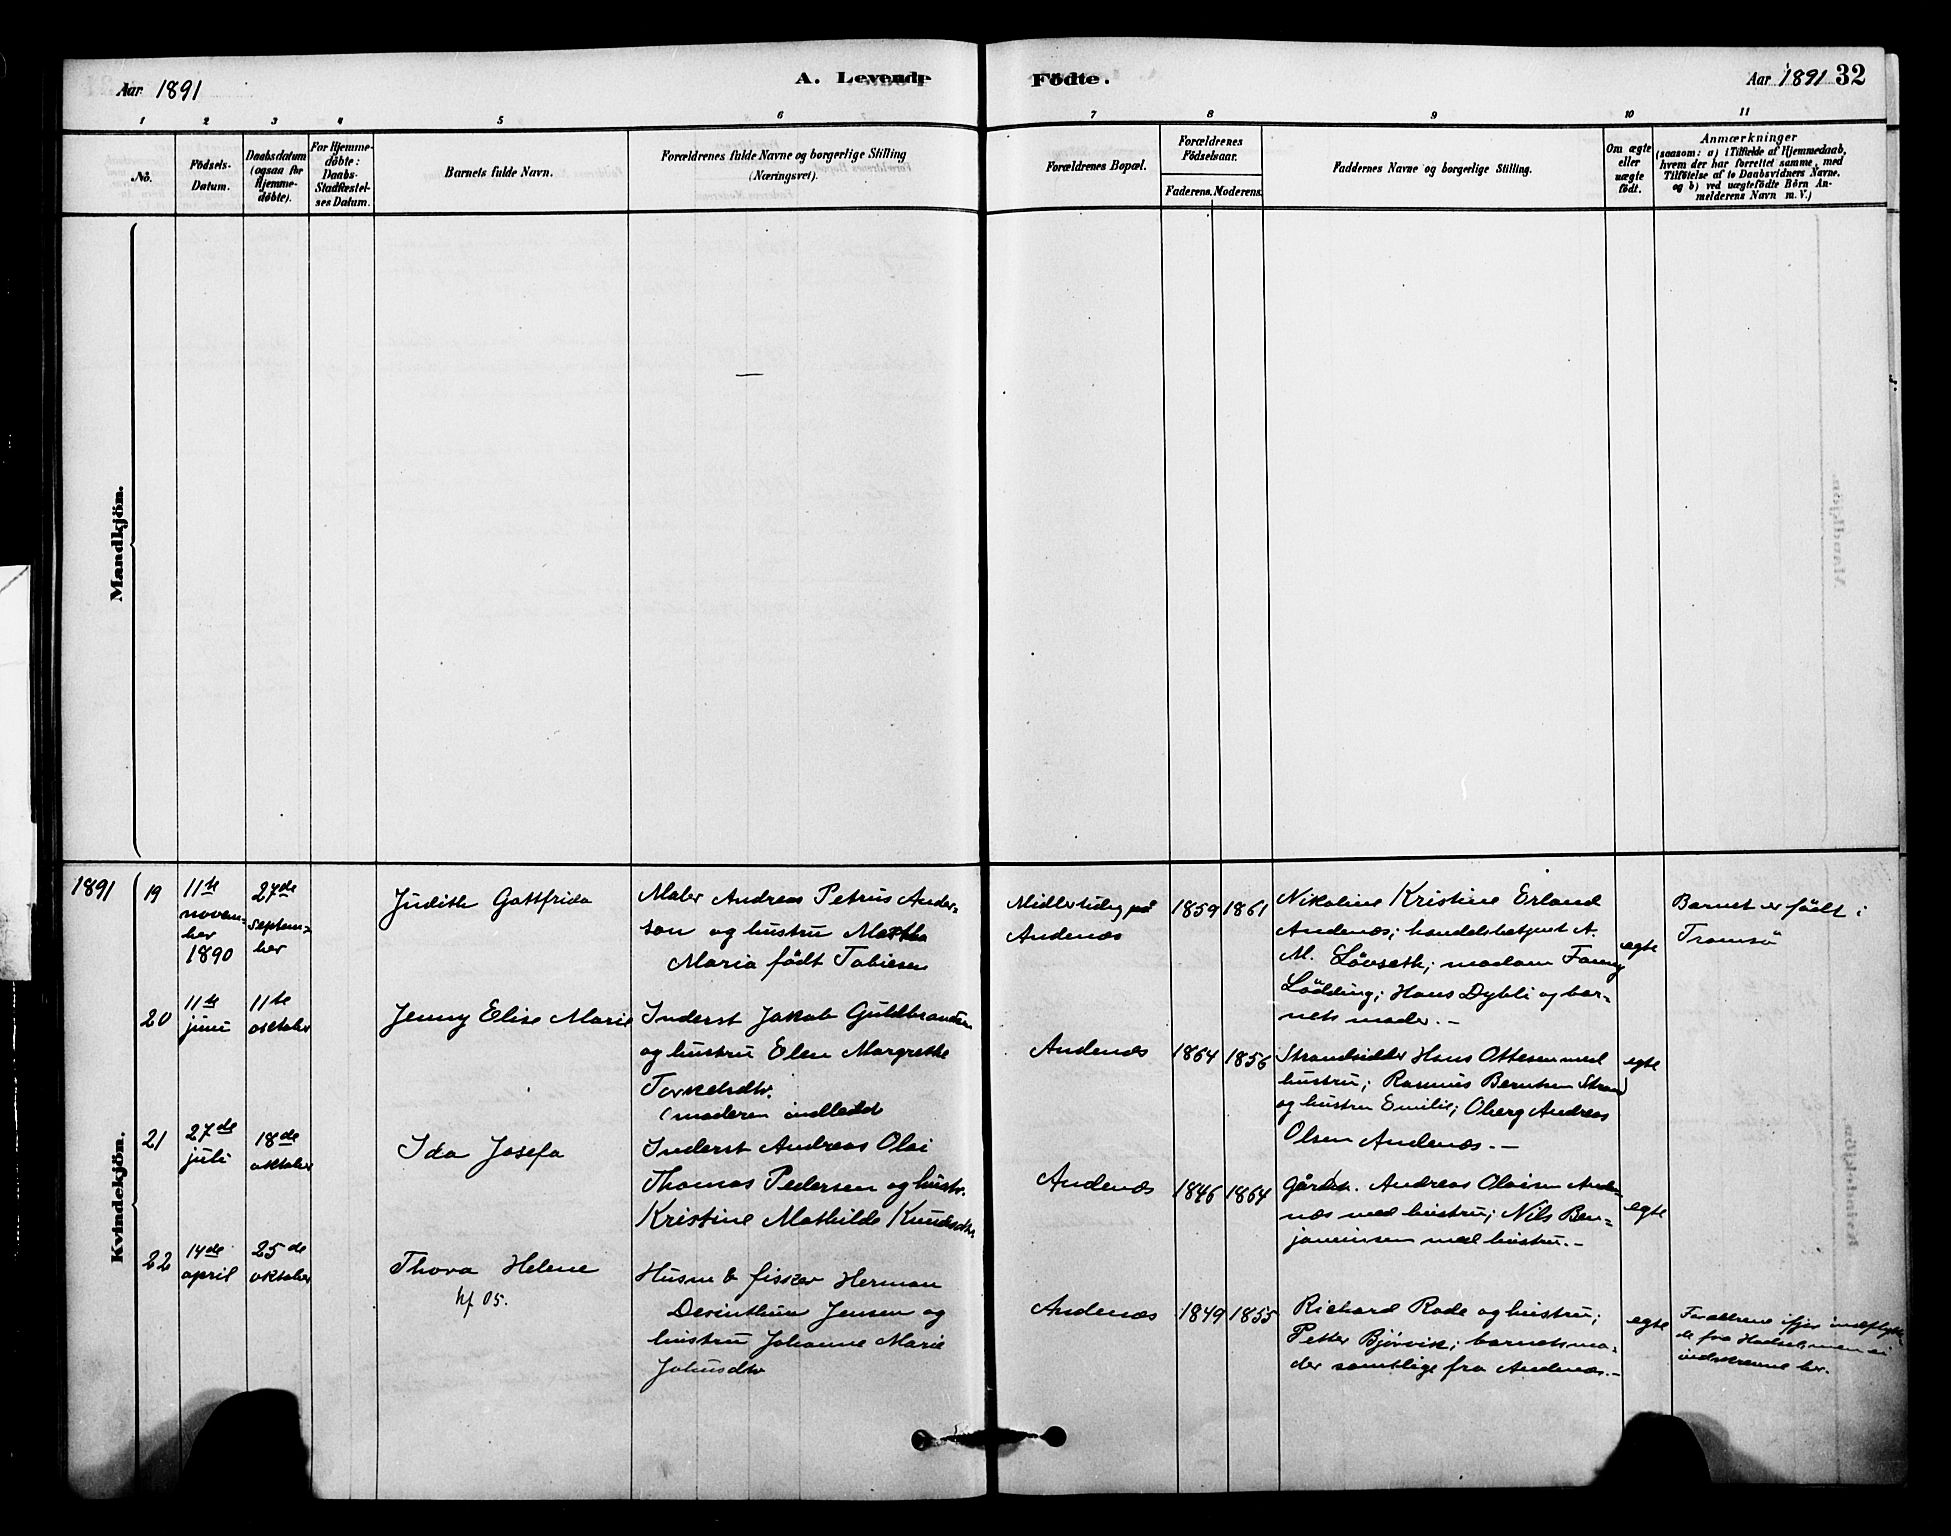 Aar 1891
A. Levende
Födte.
Aar 1891 32
1 2 3 4 5 6 7 8 9 10 11
No.
Födsels-
Datum.
Daabsdatum
(ogsaa for
Hjemme-
döbte).
For Hjemme-
döbte:
Daabs-
Stadfæstel-
ses Datum.
Barnets fulde Navn.
Forældrenes fulde Navne og borgerlige Stilling
(Næringsvei).
Forældrenes Bopæl.
Forældrenes
Födselsaar.
Faderens. Moderens.
Faddernes Navne og borgerlige Stilling.
Om ægte
eller
uægte
födt.
Anmærkninger
(saasom: a) i Tilfælde af Hjemmedaab,
hvem der har forrettet samme, med
Tilföielse af to Daabsvidners Navne.
og b) ved uægtefödte Börn An-
melderens Navn m. V.)
Mandkjön.
—
Kvindekjön.
1891
19
11te
novem-
ber
1890
27de
septem-
ber
Judith Gottfrida
Maler Andreas Petrus Ander-
son og hustru Martha
Maria født Tobiesen
Midlertidig på
Andenæs
1859
1861
Nikoline Kristine Erland
Andenæs; handelsbetjent A.
M. Løvseth; madam Fanny
Lødding; Hans Dybli og bar-
nets moder. —
egte
Barnet er født i
Tromsø
20
11te
juni
11te
october
Jenny Elise Marie
Inderst Jakob Guldbrandsen
og hustru Elen Margrethe
Torkelsdtr.
(moderen indledet
Andenæs
1864
1856
Strandsidder Hans Ottesen med
hustru; Rasmus Berntsen Strand
og hustru Emilie; Oberg Andreas
Olsen Andenæs. —
egte
21
27de
juli
18de
oktober
Ida Josefa
Inderst Andreas Olai
Thomas Pedersen og hustr.
Kristine Mathilde Knudsdtr.
Andenæs
1846
1864
Gårdbr. Andreas Olaisen Ande-
næs med hustru; Nils Ben-
jaminsen med hustru. —
egte
22
14de
april
25de
oktober
Thora Helene
kf 05.
Husm & fisker Herman
Jensen og
hustru Johanne Marie
Johnsdtr
Andenæs
1849
1855
Richard Rode og hustru;
Petter Bjørvik; barnets mo-
der samtlige fra Andenæs. —
egte
Forældrene ifjor indflytte-
de fra Hadsel, men ei
indskrevne her.